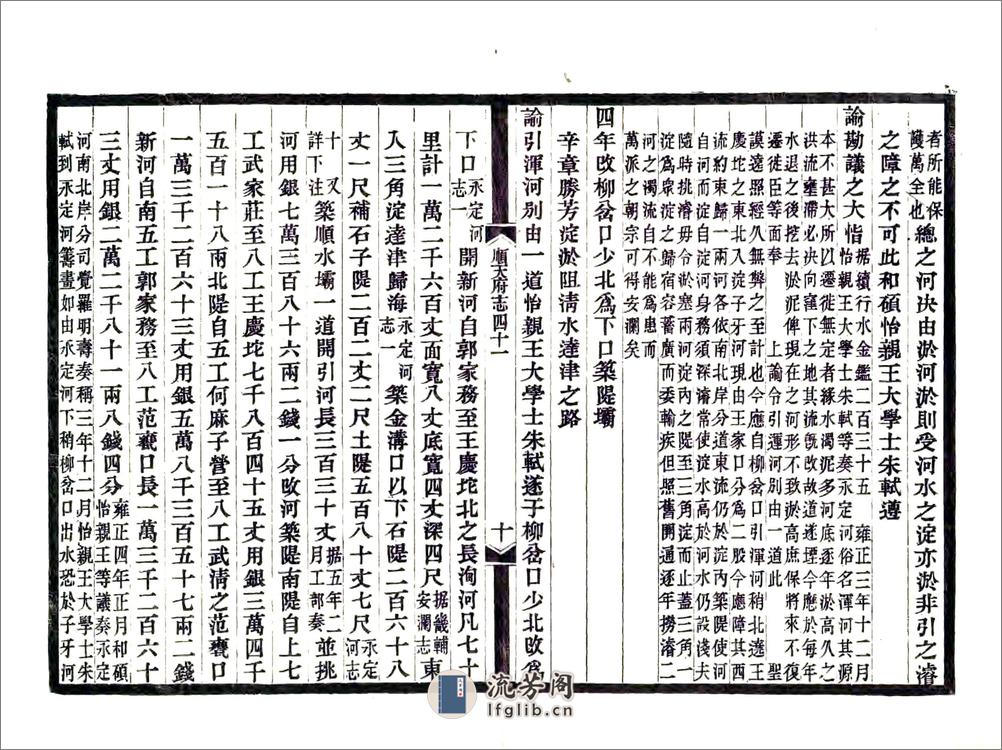 者所能保
護萬全也總之河決由淤河淤則受河水之淀亦淤非引之濬
之障之不可此和碩怡親王大學士朱軾遵
諭勘議之大恉據續行水金鑑二百三十五 雍正三年十二月
怡親王大學士朱軾等奏永定河俗名渾河其源
本不甚大所以遷徙無定者緣水濁泥多河底逐年淤高久之
洪流壅滯必決向窪下之地其流旣改故道遂堙今應於每年
水退之後挖去淤泥俾現在之河形不致淤高庶保將來不復
遷徙臣等面奉 上諭令引運河別由一道此 聖
謨遠照經久無弊之至計也今應自柳岔口引渾河稍北遶王
慶坨之東北入淀子牙河現由王家口分為二股今應障其西
流約束歸一兩河各依南北岸分道東流仍於淀內築隄使河
自河而淀自淀河身務須深濬常使淀水高於河水仍設淺夫
隨時挑濬毋令淤塞兩河淀內之隄至三角淀而止蓋三角一
淀為眾淀之歸宿容蓄廣而委輸疾但照舊開通逐年撈濬二
河之濁流自不能為患而
萬派之朝宗可得安瀾矣
四年改柳岔口少北為下口築隄壩
辛章勝芳淀淤阻清水達津之路
諭引渾河別由一道怡親王大學士朱軾遂于柳岔口少北改為
順天府志四十一
十
下口永定河
志一開新河自郭家務至王慶坨北之長洵河凡七十
里計一萬二千六百丈面寬八丈底寬四丈深四尺據畿輔
安瀾志東
入三角淀達津歸海永定河
志一築金溝口以下石隄二百六十八
丈一尺補石子隄二百二丈二尺土隄五百八十丈七尺永定
河志
十 又
詳下注築順水壩一道開引河長三百三十丈據五年二
月工部奏並挑
河用銀七萬三百八十六兩二錢一分改河築隄南隄自上七
工武家莊至八工王慶坨七千八百四十五丈用銀三萬四千
五百一十八兩北隄自五工何麻子營至八工武清之范甕口
一萬三千二百六十三丈用銀五萬八千三百五十七兩二錢
新河自南五工郭家務至八工范甕口長一萬三千二百六十
三丈用銀二萬二千八十一兩八錢四分雍正四年正月和碩
怡親王等議奏永定
河南北岸分司覺羅明壽奏稱三年十二月怡親王大學士朱
軾到永定河籌畫如由永定河下稍柳岔口出水恐於子牙河
流芳阁
lfglib.cn